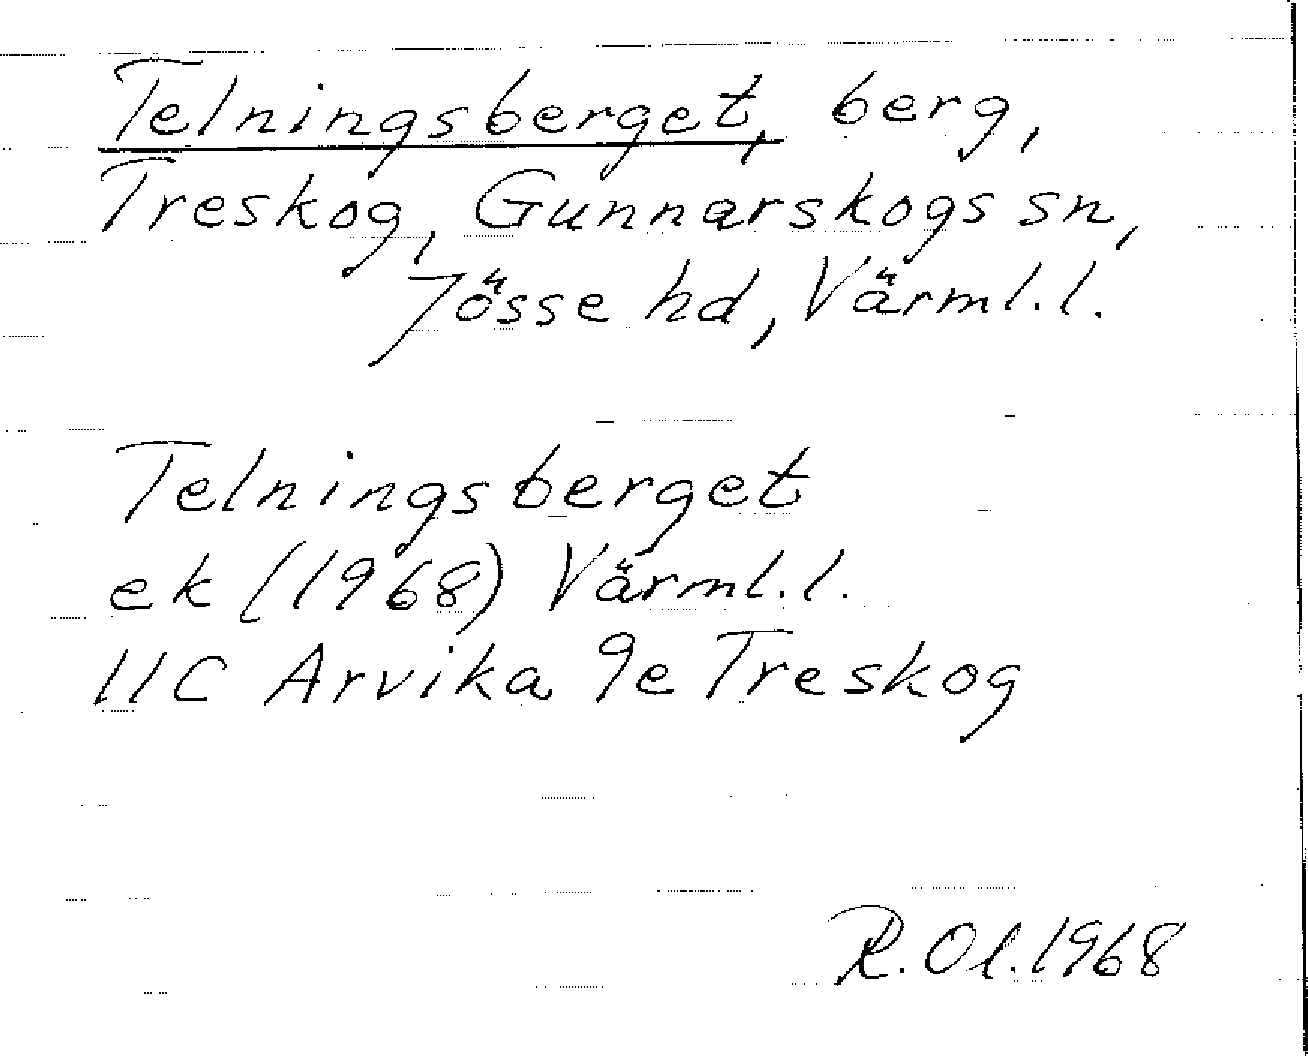 Telningsberget, berg,
Treskog, Gunnarskogs sn,
Jösse hd, Värml. l.
Telningsberget
ek (1968) Värml. l.
11C Arvika 9e Treskog
R. Ol. 1968